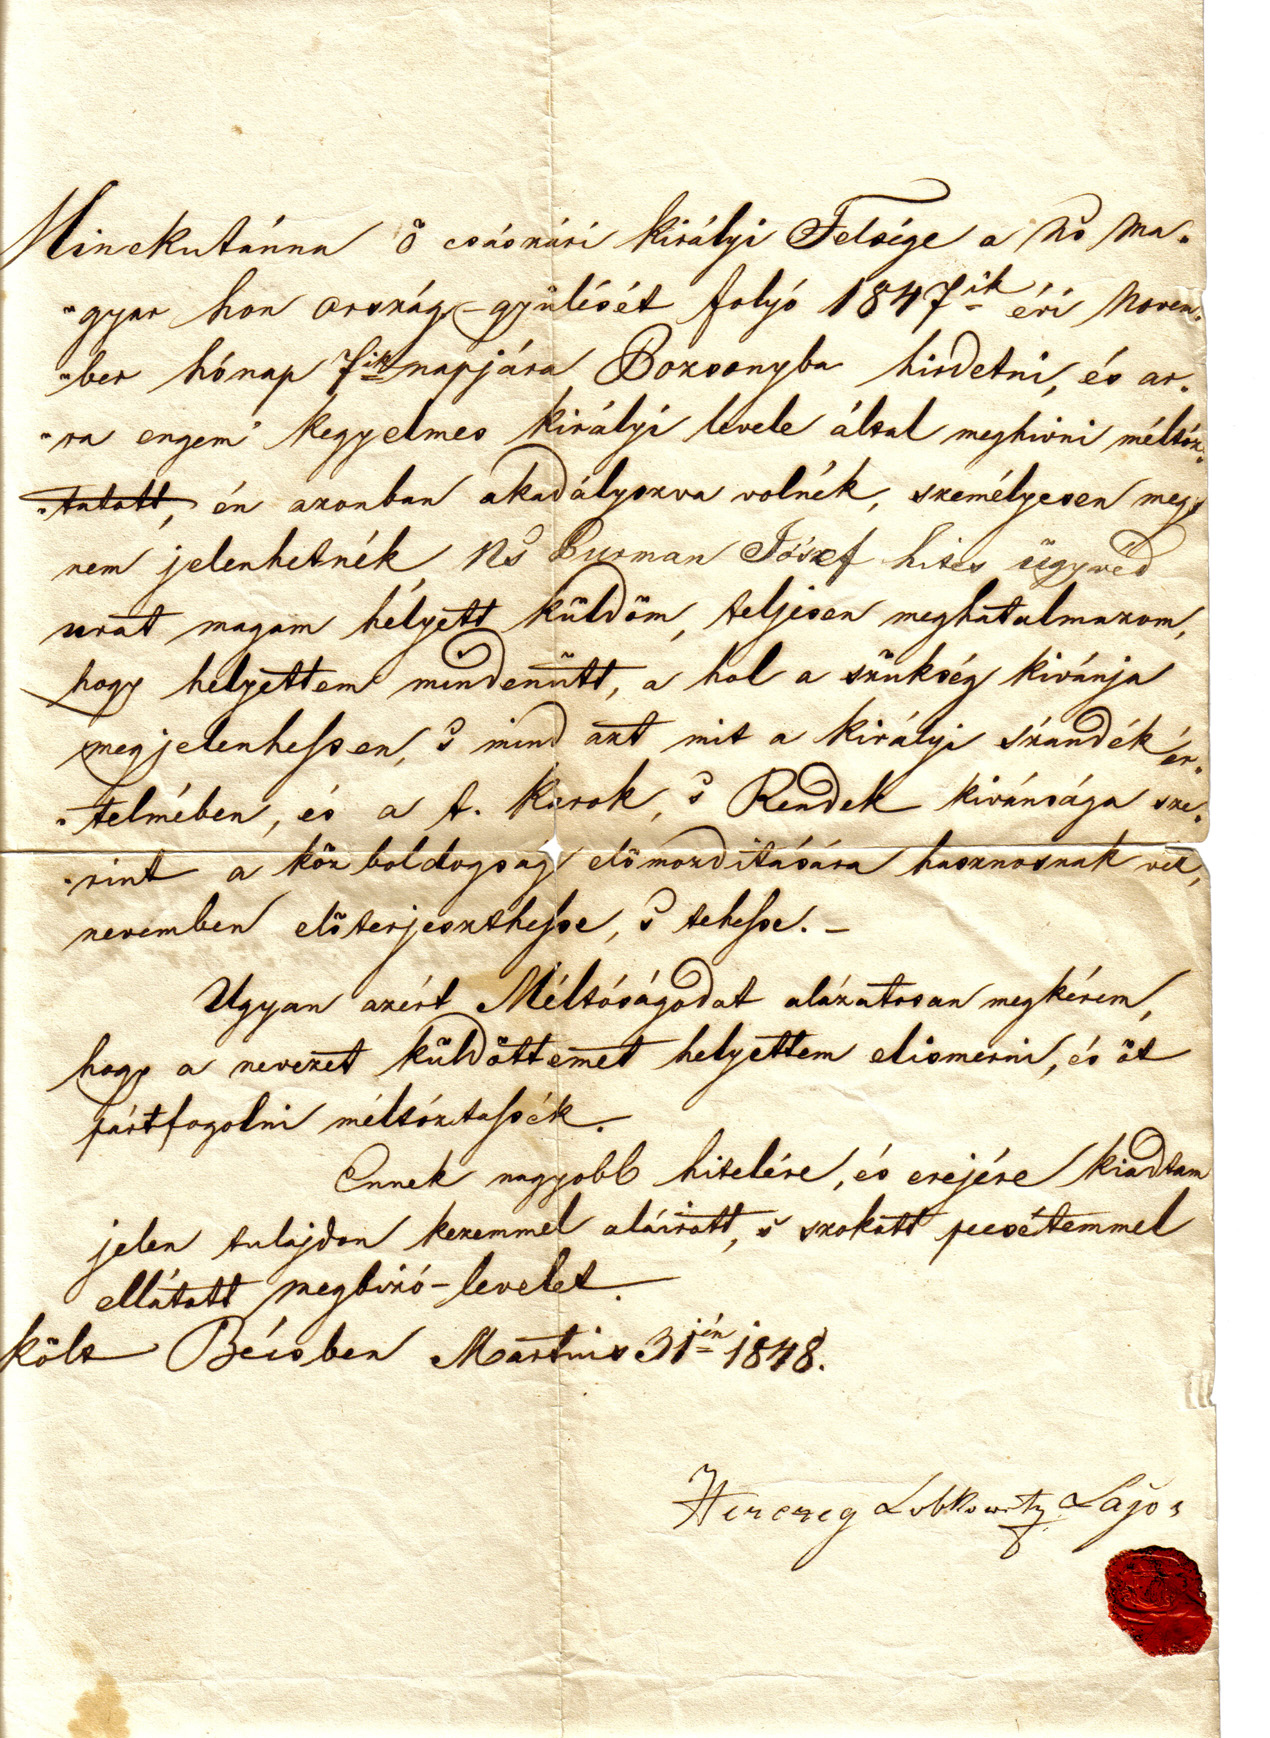 Minekutánna ő császári királyi Felsége a Ns Ma-
gyar hon ország-gyülését folyó 1847ik évi Novem-
ber hónap 7ik napjára Pozsonyba hirdetni, és ar-
ra engem' kegyelmes királyi levele által meghivni méltóz-
tatott, én azonban akadályozva volnék, személyesen meg
nem jelenhetnék Ns Burman József hites ügyvéd
urat magam hélyett küldöm, teljesen meghatalmazom,
hogy helyettem mindenütt, a hol a szükség kivánja
megjelenhessen, 's mind azt mit a királyi szándék ér-
telmében, és a t. Karok, 's Rendek kivánsága sze-
rint a köz boldogság előmozditására hasznosnak vél,
nevemben előterjeszthesse, 's tehesse. –
Ugyan azért Méltóságodat alázatosan megkérem,
hogy a nevezet küldöttemet helyettem elismerni, és öt
pártfogolni méltóztassék.
Ennek nagyobb hitelére, és erejére kiadtam
jelen tulajdon kezemmel aláiratt, s szokott pecsétemmel
ellátott megbizó-levelet.
költ Bécsben Martius 31én 1848.
Herczeg Lobkowitz Lajos